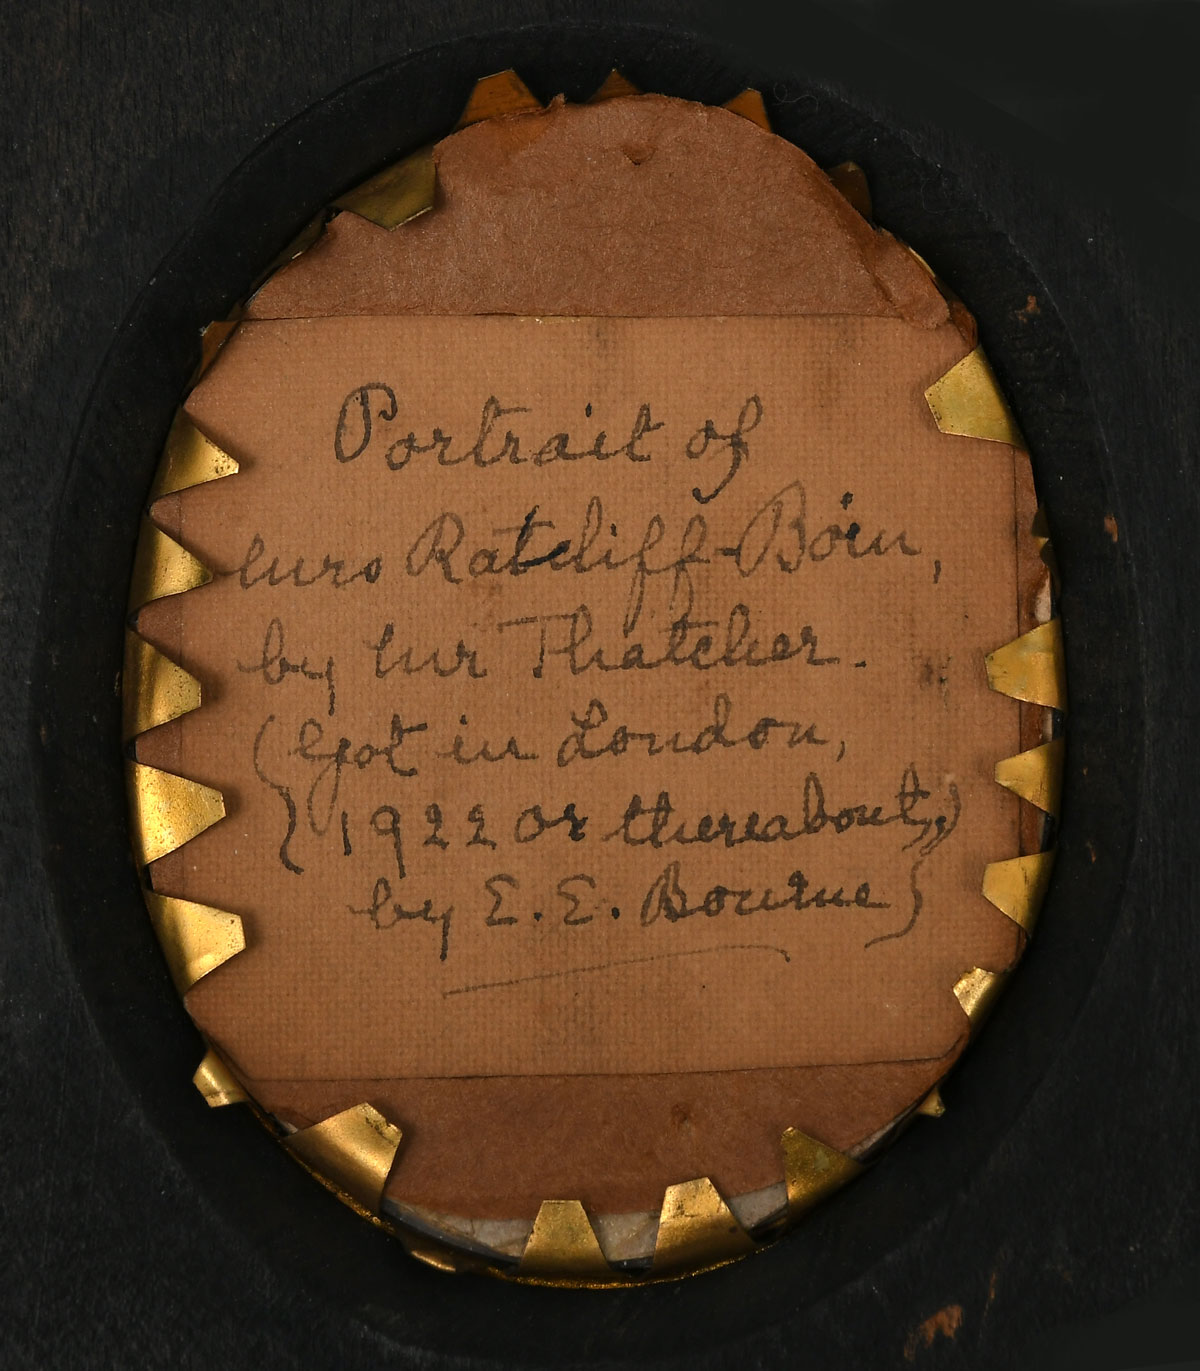 Portrait of
Mrs Ratcliff-Boin,
by Mr Thatcher.
(Got in London,
1922 or thereabout,)
by E. E. Bourne